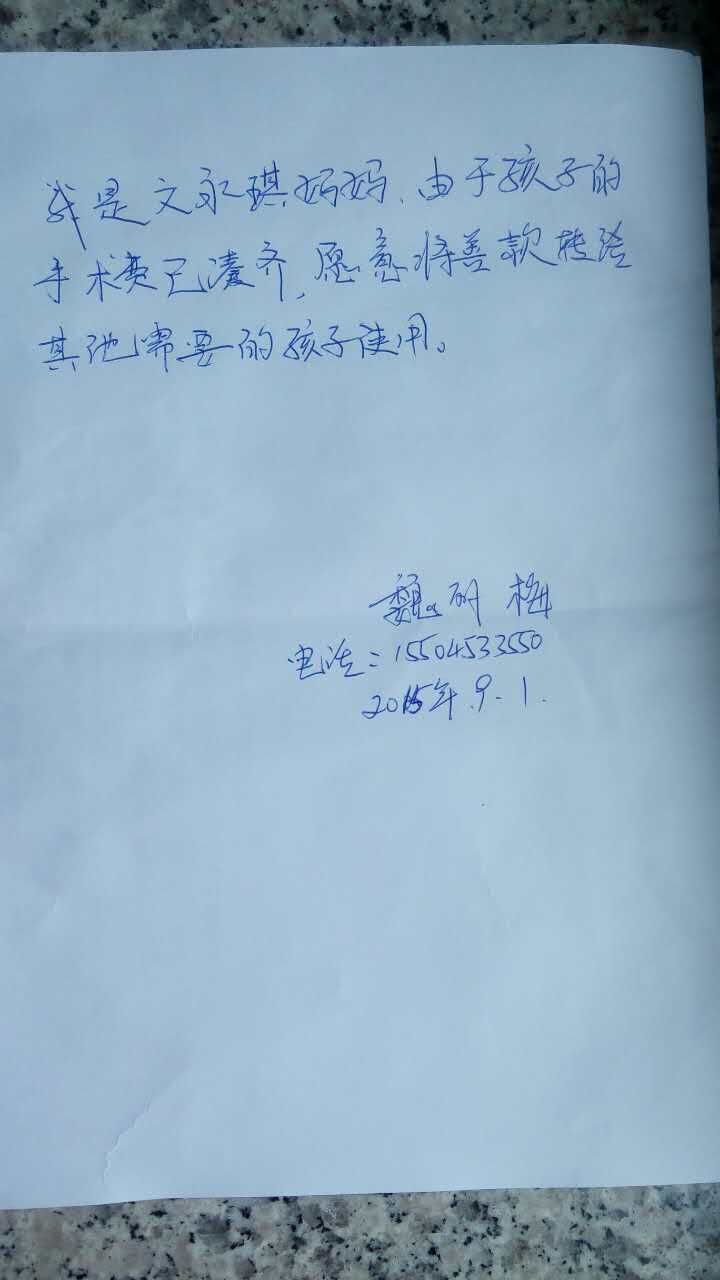 我是文永琪妈妈、由于孩子的
手术费已凑齐,愿意将善款转给
其他需要的孩子使用。
魏 梅
电话:15504533550
2015年.9.1.